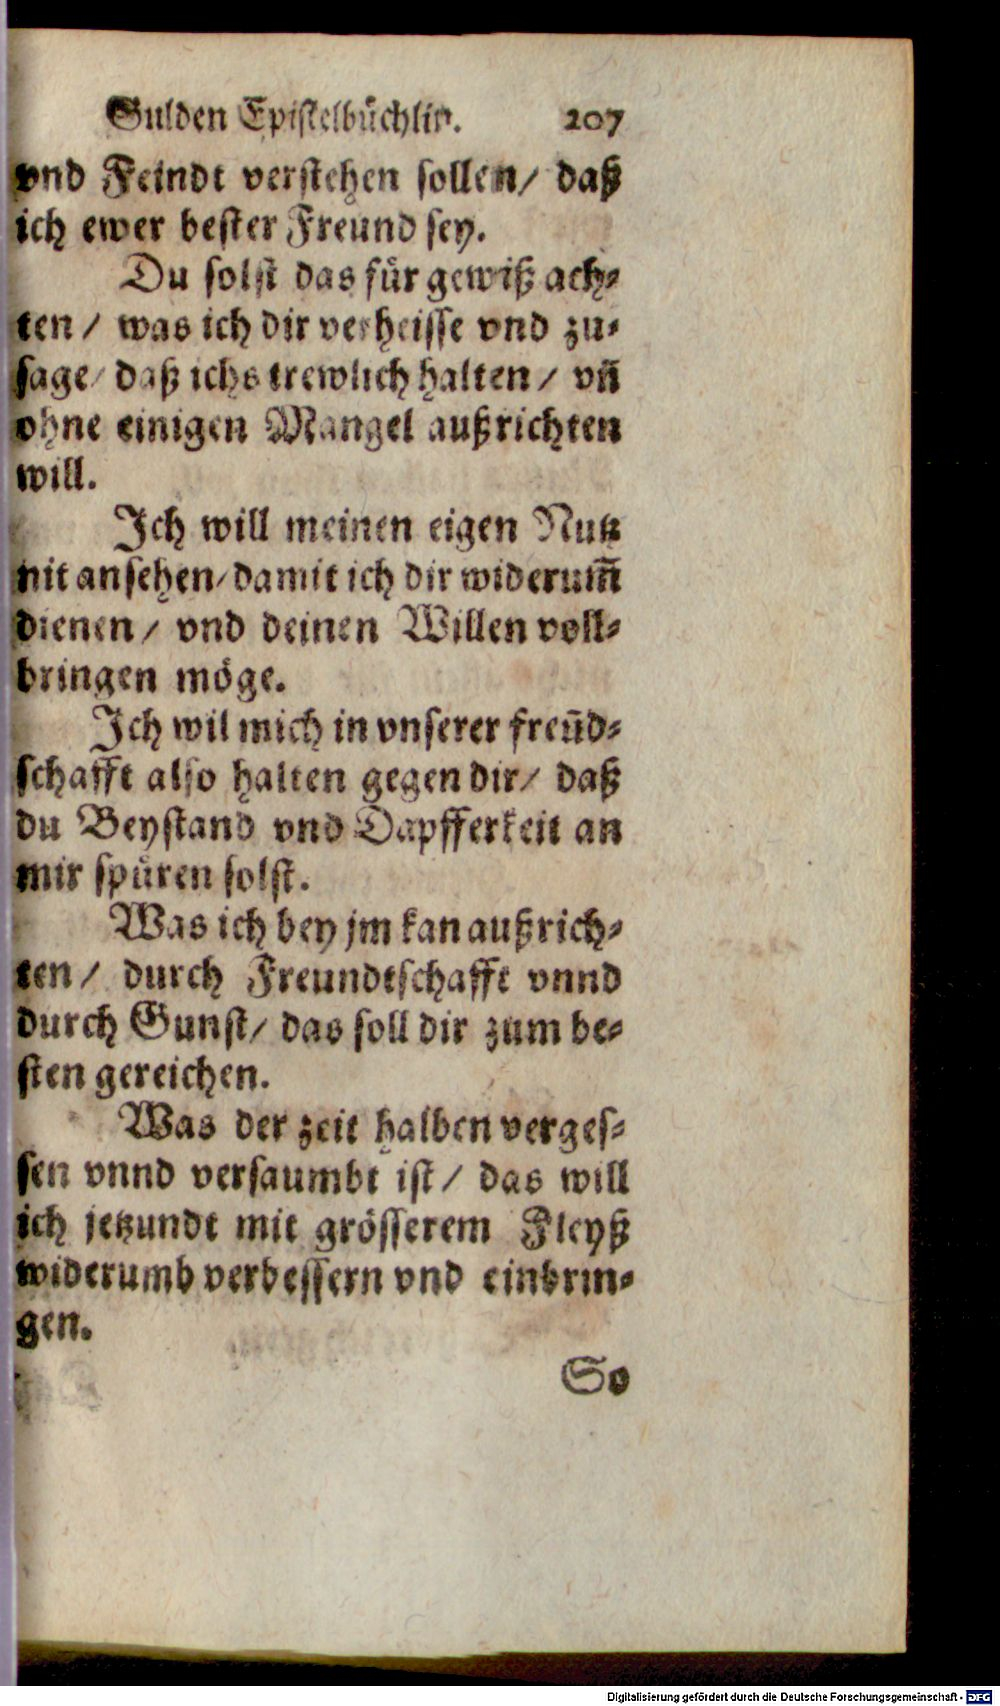 Gulden Epistelbüchlin. 207
vnd Feindt verstehen sollen/ daß
ich ewer bester Freund sey.
Du solst das für gewiß ach-
ten/ was ich dir verheisse vnd zu-
sage/ daß ichs trewlich halten/ vñ
ohne einigen Mangel außrichten
will.
Ich will meinen eigen Nutz
nit ansehen/ damit ich dir widerum̃
dienen/ vnd deinen Willen voll-
bringen möge.
Ich wil mich in vnserer freũd-
schafft also halten gegen dir/ daß
du Beystand vnd Dapfferkeit an
mir spüren solst.
Was ich bey jm kan außrich-
ten/ durch Freundtschafft vnnd
durch Gunst/ das soll dir zum be-
sten gereichen.
Was der zeit halben verges-
sen vnnd versaumbt ist/ das will
ich jetzundt mit grösserem Fleyß
widerumb verbessern vnd einbrin-
gen.
So
Digitalisierung gefördert durch die Deutsche Forschungsgemeinschaft - DFG